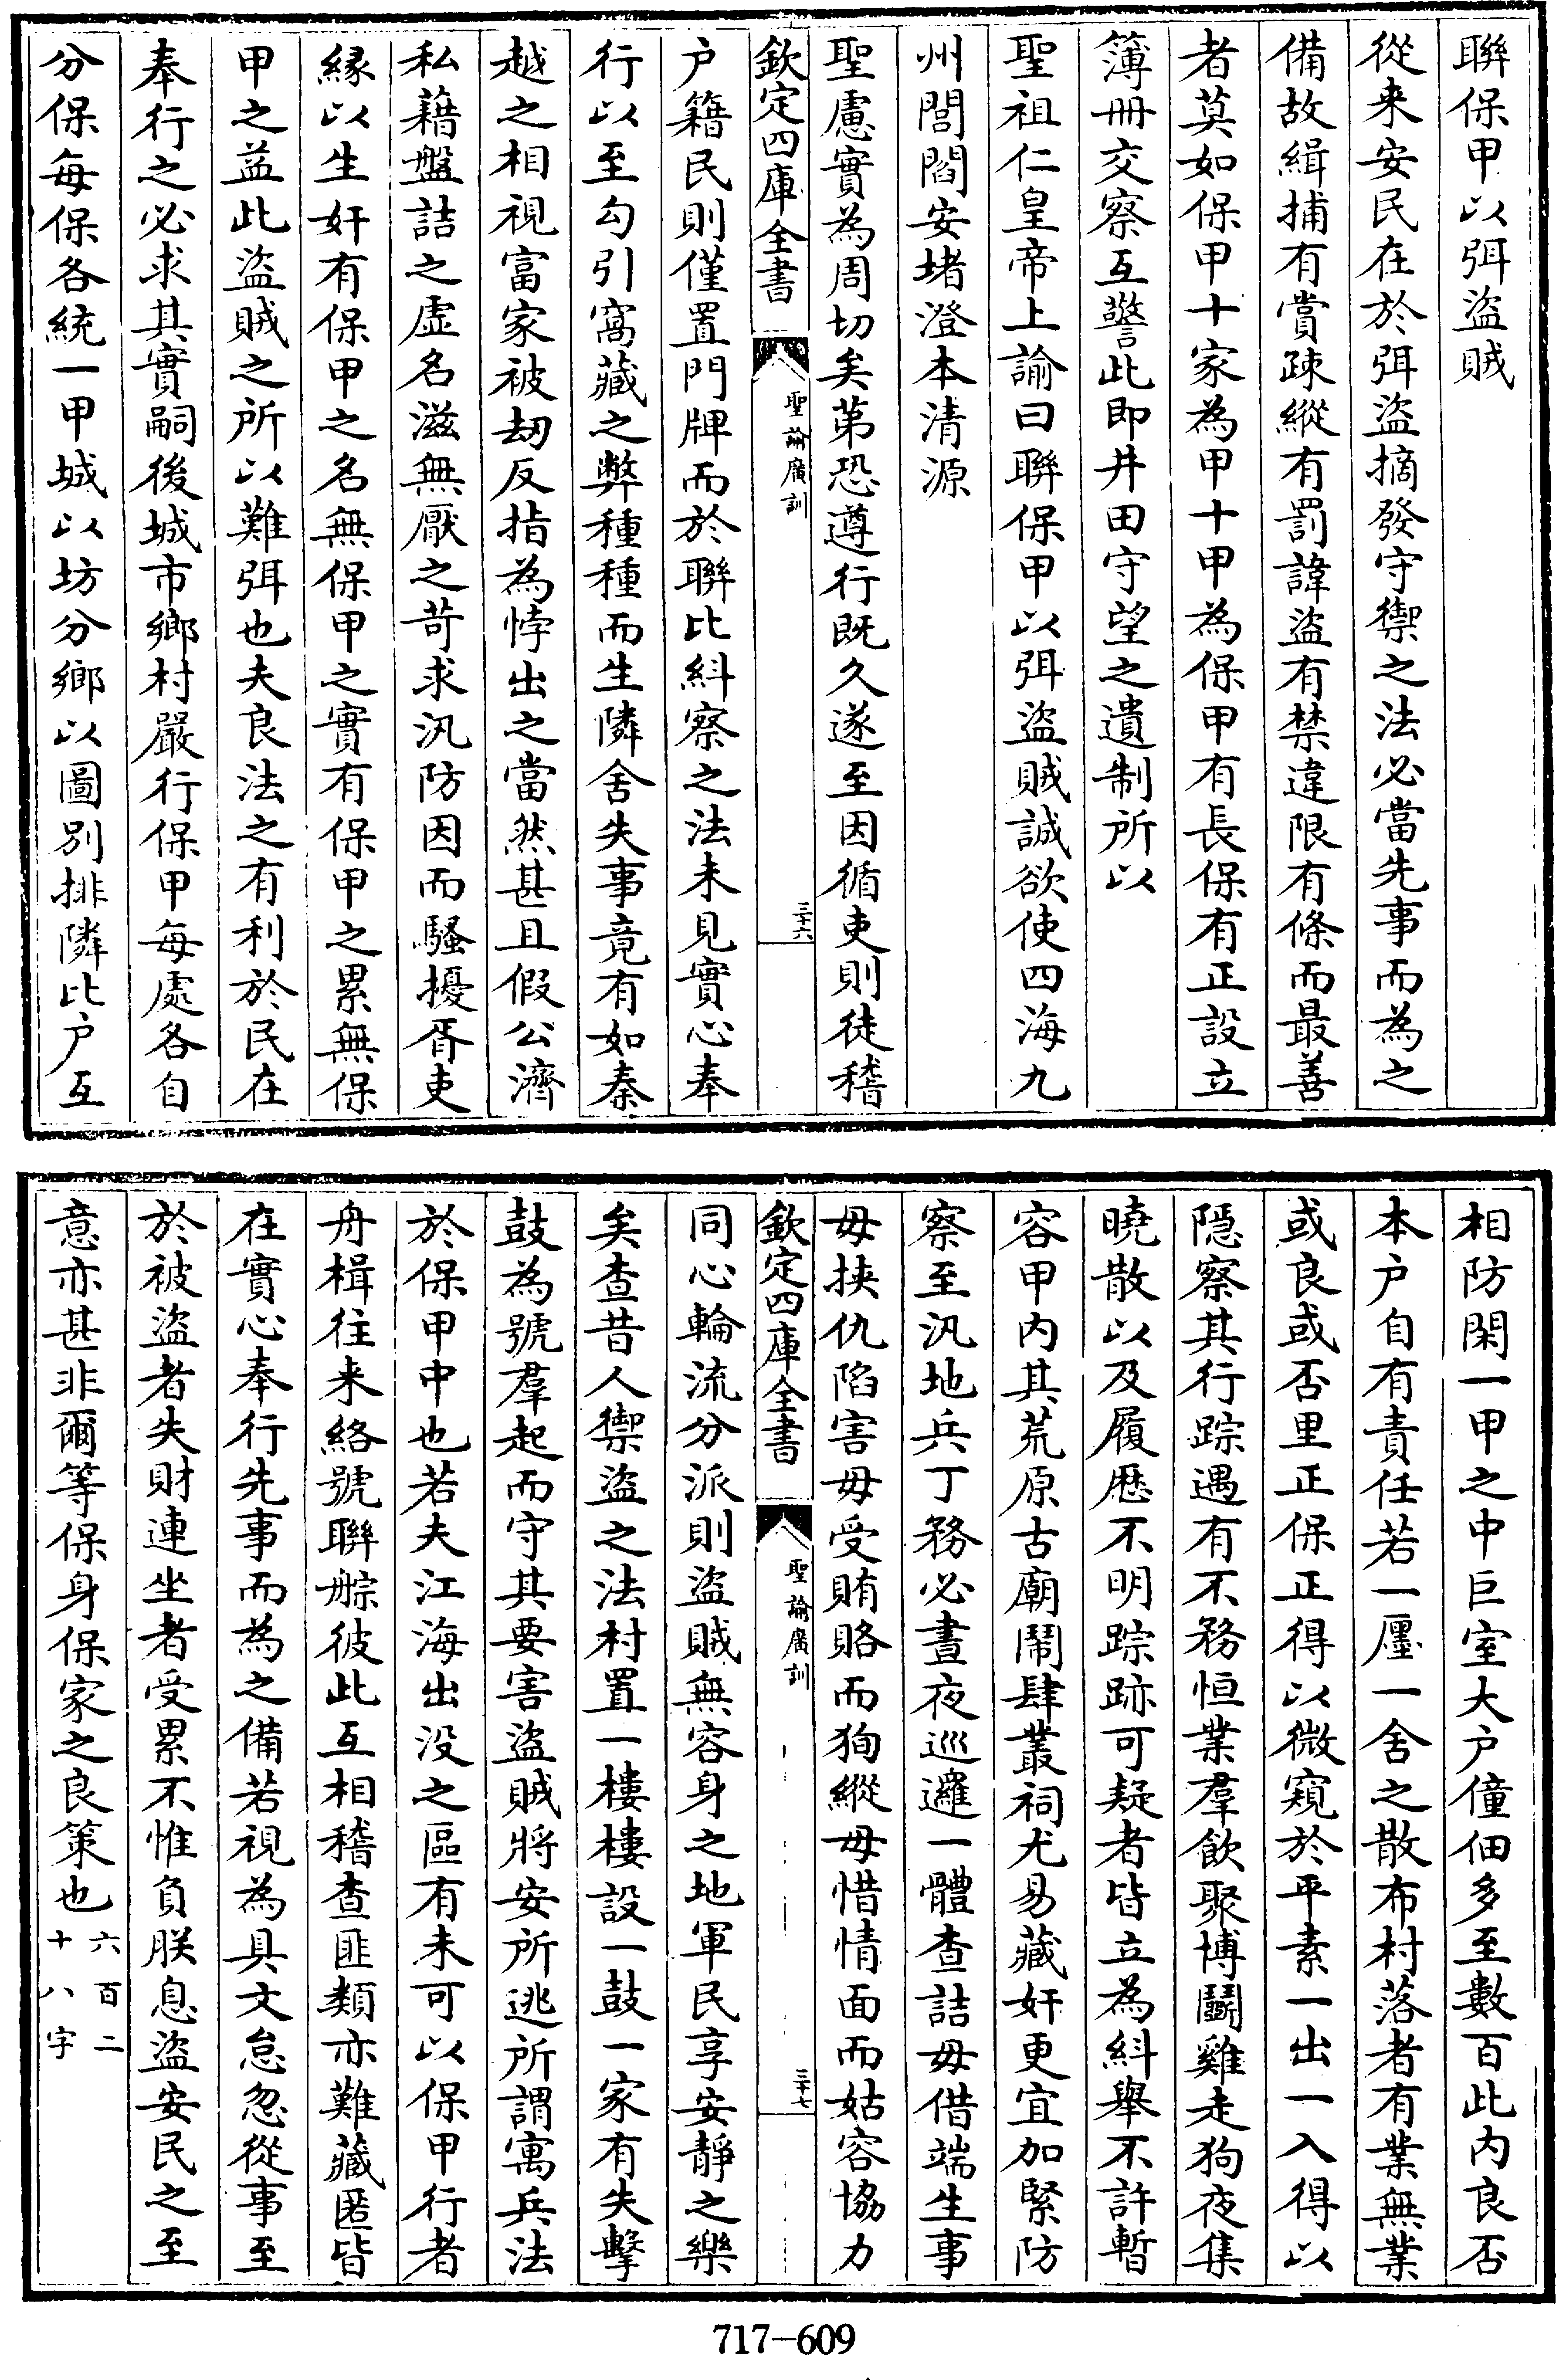 聯保甲以弭盜賊
從来安民在於弭盜摘發守禦之法必當先事而為之
備故緝捕有賞疎縱有罰諱盜有禁違限有條而最善
者莫如保甲十家為甲十甲為保甲有長保有正設立
簿冊交察互警此即井田守望之遺制所以
聖祖仁皇帝上諭曰聯保甲以弭盜賊誠欲使四海九
州閭閻安堵澄本清源
聖慮實為周切矣第恐遵行既久遂至因循吏則徒稽
欽定四庫全書
聖諭廣訓
三十六
户籍民則僅置門牌而於聯比糾察之法未見實心奉
行以至勾引窩藏之弊種種而生隣舍失事竟有如秦
越之相視富家被刼反指為悖出之當然甚且假公濟
私藉盤詰之虛名滋無厭之苛求汛防因而騷擾胥吏
緣以生奸有保甲之名無保甲之實有保甲之累無保
甲之益此盜賊之所以難弭也夫良法之有利於民在
奉行之必求其實嗣後城市鄉村嚴行保甲每處各自
分保每保各統一甲城以坊分鄉以圖別排隣比户互
相防閑一甲之中巨室大户僮佃多至數百此内良否
本户自有責任若一廛一舍之散布村落者有業無業
或良或否里正保正得以微窺於平素一出一入得以
隱察其行踪遇有不務恒業羣飲聚博鬬雞走狗夜集
曉散以及履歷不明踪跡可疑者皆立為糾舉不許暫
容甲内其荒原古廟鬧肆叢祠尤易藏奸更宜加緊防
察至汛地兵丁務必晝夜巡邏一體查詰毋借端生事
毋挾仇陷害毋受賄賂而狥縱毋惜情面而姑容協力
欽定四庫全書
聖諭廣訓
三十七
同心輪流分派則盜賊無容身之地軍民享安靜之樂
矣查昔人禦盜之法村置一樓樓設一鼓一家有失擊
鼓為號羣起而守其要害盜賊將安所逃所謂寓兵法
於保甲中也若夫江海出没之區有未可以保甲行者
舟楫往来絡號聯䑸彼此互相稽查匪類亦難藏匿皆
在實心奉行先事而為之備若視為具文怠忽從事至
於被盜者失財連坐者受累不惟負朕息盜安民之至
意亦甚非爾等保身保家之良策也六百二十八字
717-609